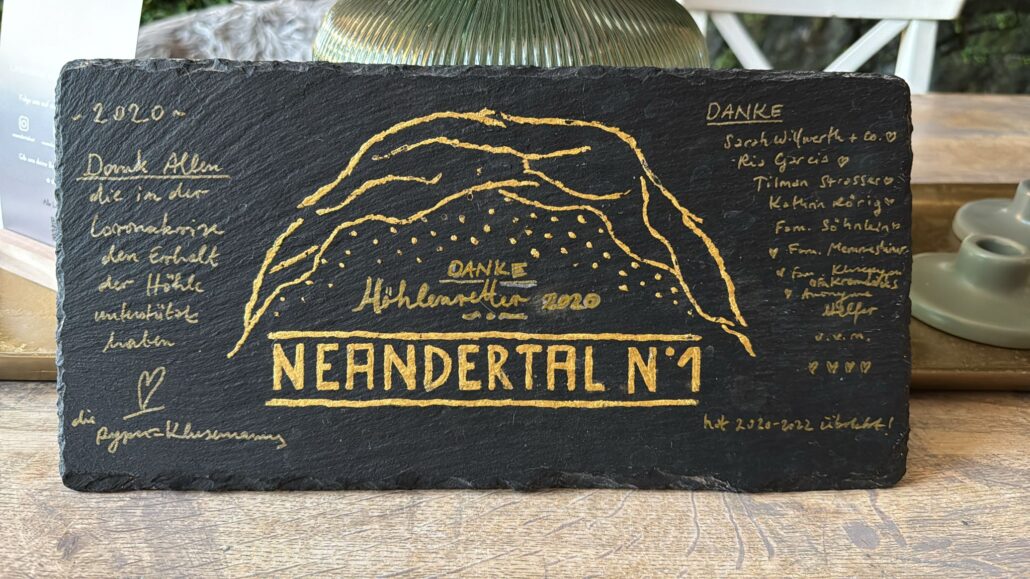 ~ 2020 ~
Dank Allen
die in der
Coronakrise
den Erhalt
der Höhle
unterstützt
haben
die
DANKE
Höhlenretter 2020
NEANDERTAL N°1
DANKE
Sarah Willwerth + Co. ♡
Rio Garcia ♡
Tilman Strasser ♡
Kathrin Rörig ♡
Fam. Söhnlein
♡ Fam.
♡ Fam.
♡ Anonyme
Helfer
u.v.m.
♡ ♡ ♡ ♡
hat 2020-2022 überlebt!